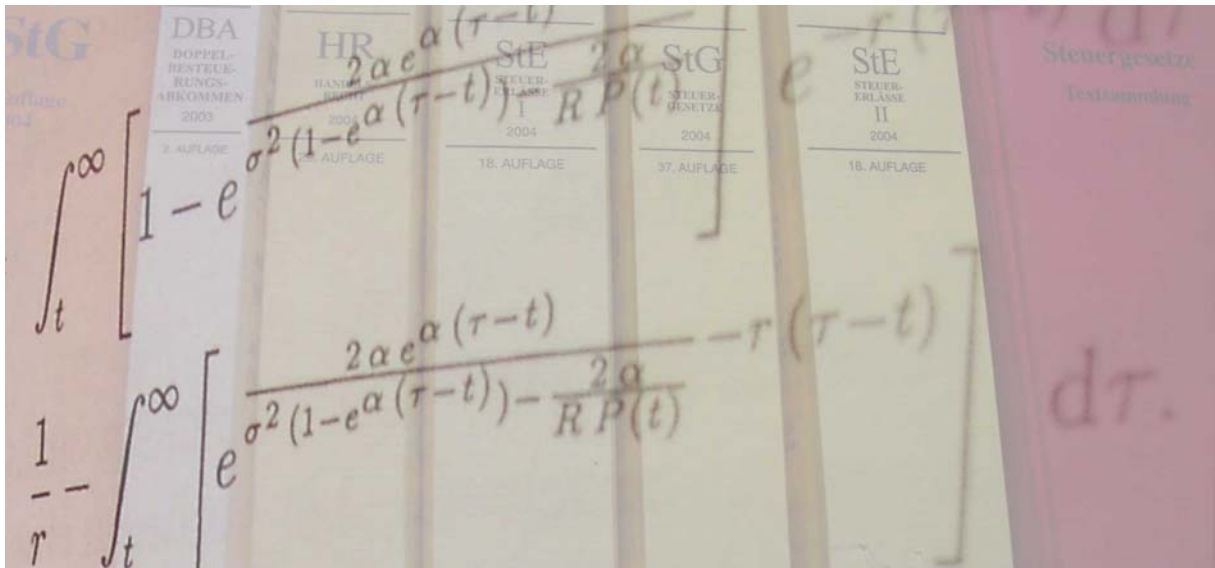 StG
2004
DBA
DOPPEL-
BESTEUE-
RUNGS-
ABKOMMEN
2003
2. AUFLAGE
HR
HANDELS-
RECHT
2004
AUFLAGE
StE
STEUER-
ERLÄSSE
I
2004
18. AUFLAGE
StG
STEUER-
GESETZE
2004
37. AUFLAGE
StE
STEUER-
ERLÄSSE
II
2004
18. AUFLAGE
Steuergesetze
Textsammlung
∫_t^∞ [1 − e^{\frac{2 α e^{α (τ−t)}}{σ^2 (1−e^{α (τ−t)}) − \frac{2 α}{R P(t)}}}] e^{−r (τ−t)} dτ
\frac{1}{r} − ∫_t^∞ [e^{\frac{2 α e^{α (τ−t)}}{σ^2 (1−e^{α (τ−t)}) − \frac{2 α}{R P(t)}} − r (τ−t)}] dτ.